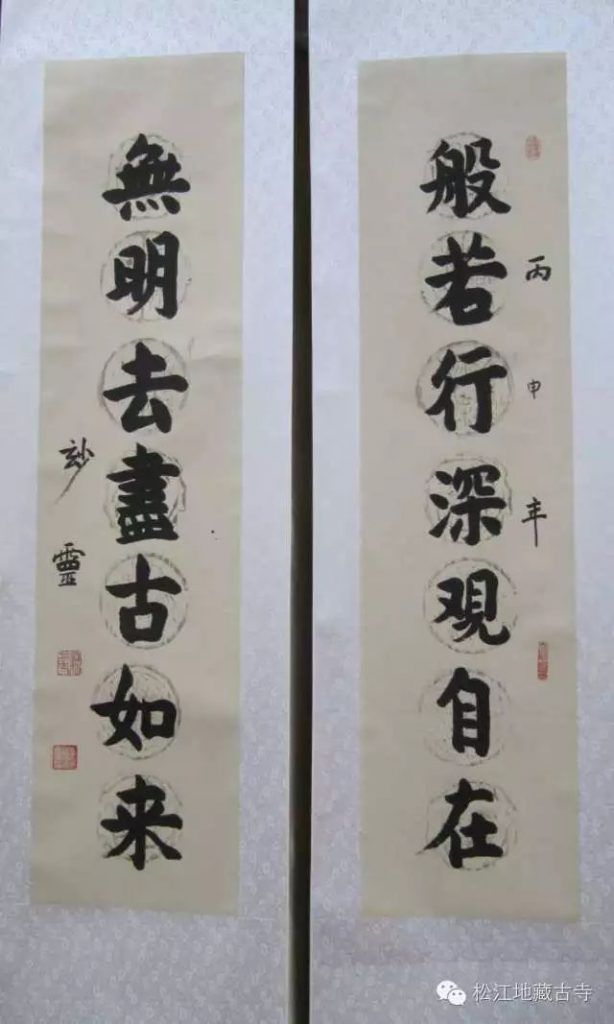 般若行深观自在
丙申年
無明去盡古如来
玅靈
松江地藏古寺